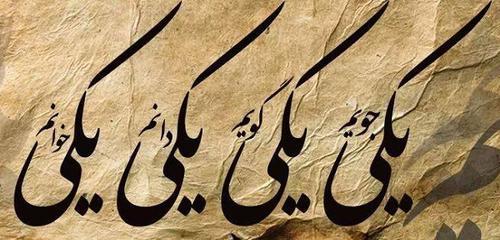 یکی جویم یکی گویم یکی دانم یکی خوانم